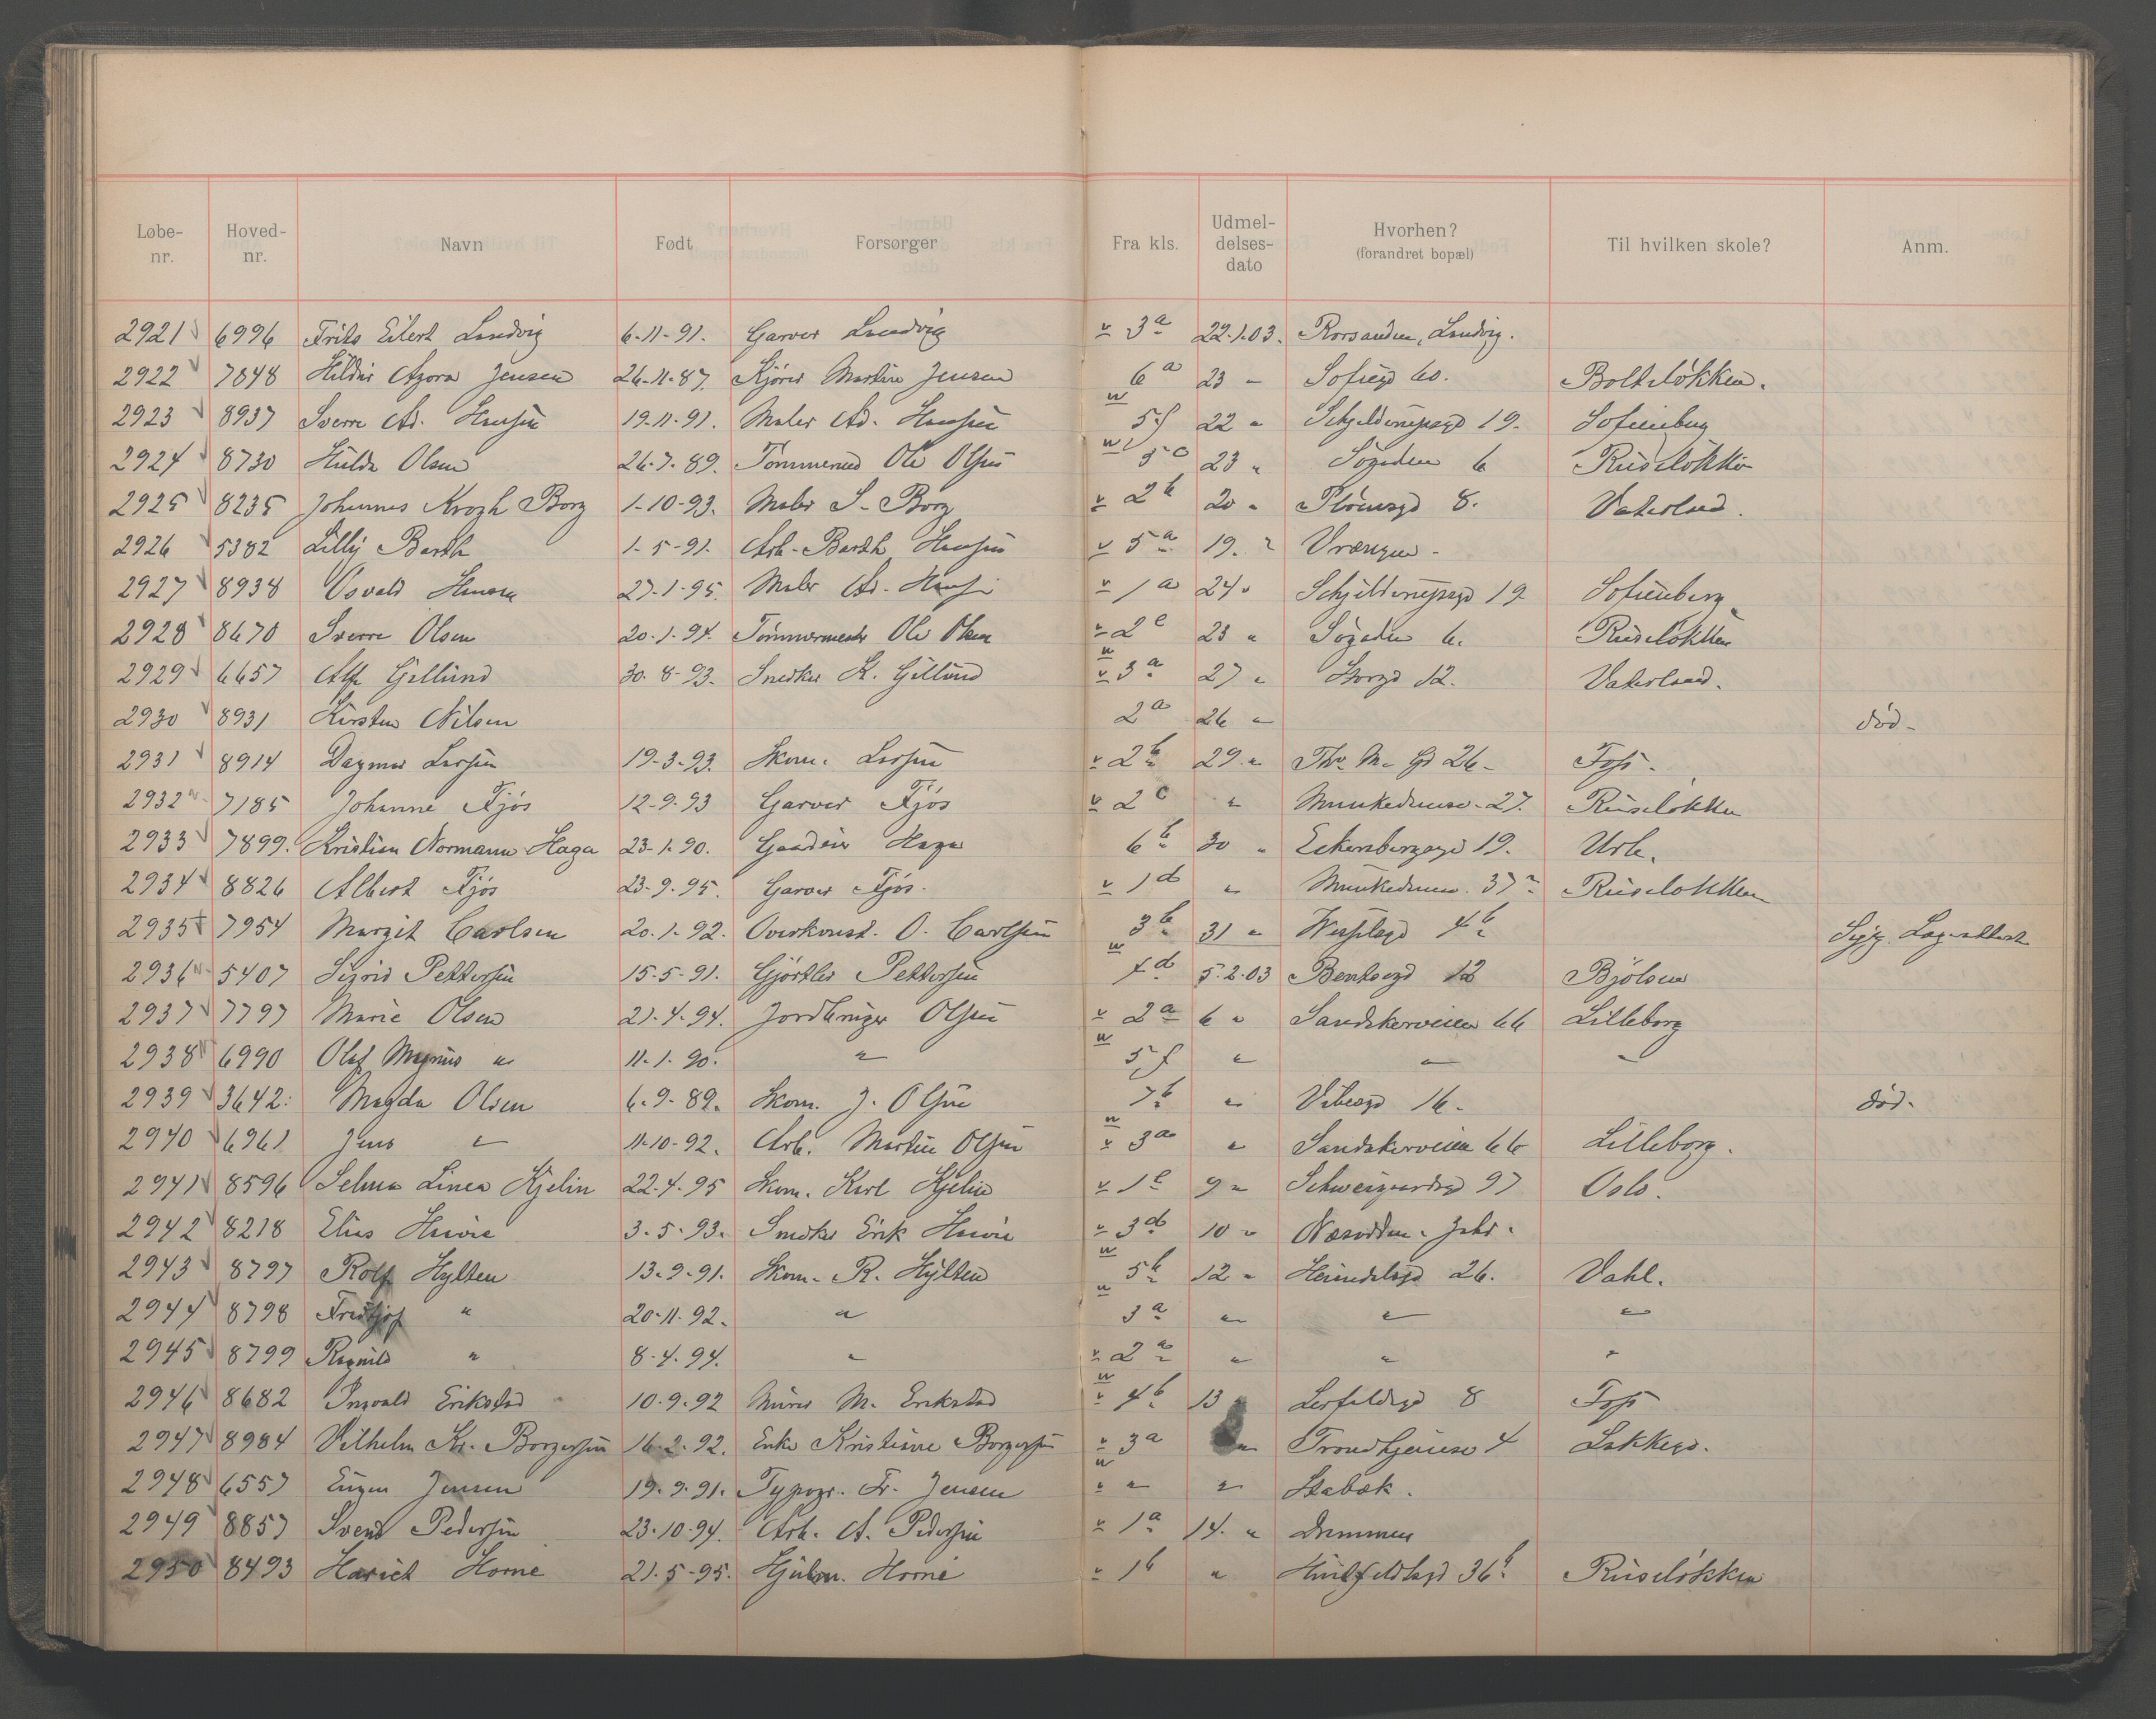 Løbe-nr. Hoved-nr. Navn Født Forsørger Fra kls. Udmel-delses-dato Hvorhen? (forandret bopæl) Til hvilken skole? Anm.
2921 6996 Frits Eilert Landvig 6-11-91. Garver Landvig v 3a 22.1.03. Rorsanden, Landvig.
2922 7848 Agora Jensen 26-11-87. Kjører Martin Jensen 6a 23 - Sofiegd 60. Bolteløkken.
2923 8937 Sverre Ad. Hansen 19-11-91. Maler Ad. Hansen 5f 22 " Schjelderupsgd 19. Sofienberg
2924 8730 Hulda Olsen 26-7-89. Ole Olsen 5c 23 " Søgaden 6 Ruseløkken
2925 8235 Johannes Krogh Borg 1-10-93. Maler S. Borg v 2b 20 " 8. Vaterland.
2926 5382 Lilly Barth 1-5-91. Arb. Barth Hansen v 5a 19. " Vrængen.
2927 8938 Osvald Hansen 27-1-95. Maler Ad. Hansen v 1a 24 " Schjelderupsgd 19 Sofienberg
2928 8670 Sverre Olsen 20-1-94. Tømmermester Ole Olsen v 2e 23 " Søgaden 6. Ruseløkken
2929 6657 Alf Gjellund 30-8-93. Snedker K. Gjellund v 3a 27 " Storgd 12. Vaterland.
2930 8931 Kirsten Nilsen 2a 26 " død.
2931 8914 Dagmar Larsen 19-3-93. Skom. Larsen v 2b 29 " Thv. M. Gd 26. Foss.
2932 7185 Johanne Fjøs 12-9-93 Garver Fjøs v 2c " Munkedamsv. 27. Ruseløkken
2933 7899. Kristian Normann Haga 23-1-90. Haga 6b 30 " Eckersbergsgd 19. Ur.
2934 8826 Albert Fjøs 23-9-95. Garver Fjøs. v 1d " Munkedamsv. 37 Ruseløkken
2935 7954 Margit Carlsen 20-1-92. Overkonst. O. Carlsen 3b 31 " 4b Syg.
2936 5407 Sigrid Pettersen 15-5-91. Gjørtler Pettersen 4d 5.2.03 Bentsegd 12 Bjølsen
2937 7797 Marie Olsen 21-4-94. Jordbruger Olsen v 2a 6 " Sandakerveien 66 Lilleborg
2938 6990 Olaf Magnus " 11-1-90. " 5f " " "
2939 3642. Magda Olsen 6-9-89. Skom. J. Olsen 7b " Vibesgd 16. død.
2940 6961 Jens " 11-10-92. Arb. Martin Olsen v 3a " Sandakerveien 66 Lilleborg.
2941 8596 Selma Linea Kjelin 22-4-95 Skom. Karl Kjelin v 1e 9 " Schweigaardsgd 97 Oslo.
2942 8218 Elias 3-5-93. Snedker Erik v 3d 10 " Næsodden.
2943 8797 Rolf Hylten 13-9-91. Skom. R. Hylten 5b 12 " Heimdalsgd 26. Vahl.
2944 8798 Fridtjof " 20-11-92. " 3a " " "
2945 8799 Ragnild " 8-4-94. " v 2a " " "
2946 8682 Ingvald Erikstad 10-9-92 Murer M. Erikstad v 4b 13 " 8 Foss
2947 8984 Vilhelm Kr. Borgersen 16-2-92. Enke Kristiane Borgersen v 3a " Trondhjemsv 4 Lakkegd.
2948 6557 Eugen Jensen 19-9-91. Typogr. Fr. Jensen v " " Stabæk.
2949 8857 Svend Pedersen 23-10-94. Arb. A. Pedersen v 1a 14. " Drammen
2950 8493 Horne 21-5-95. Horne v 1b " Huitfeldtsgd 36b Ruseløkken